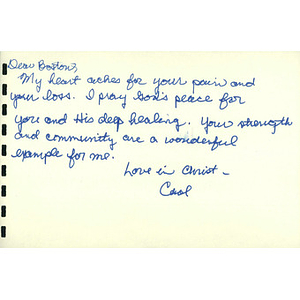 Dear Boston,
My heart aches for your pain and
your loss. I pray God's peace for
you and His deep healing. Your strength
and community are a wonderful
example for me.
Love in Christ -
Carol